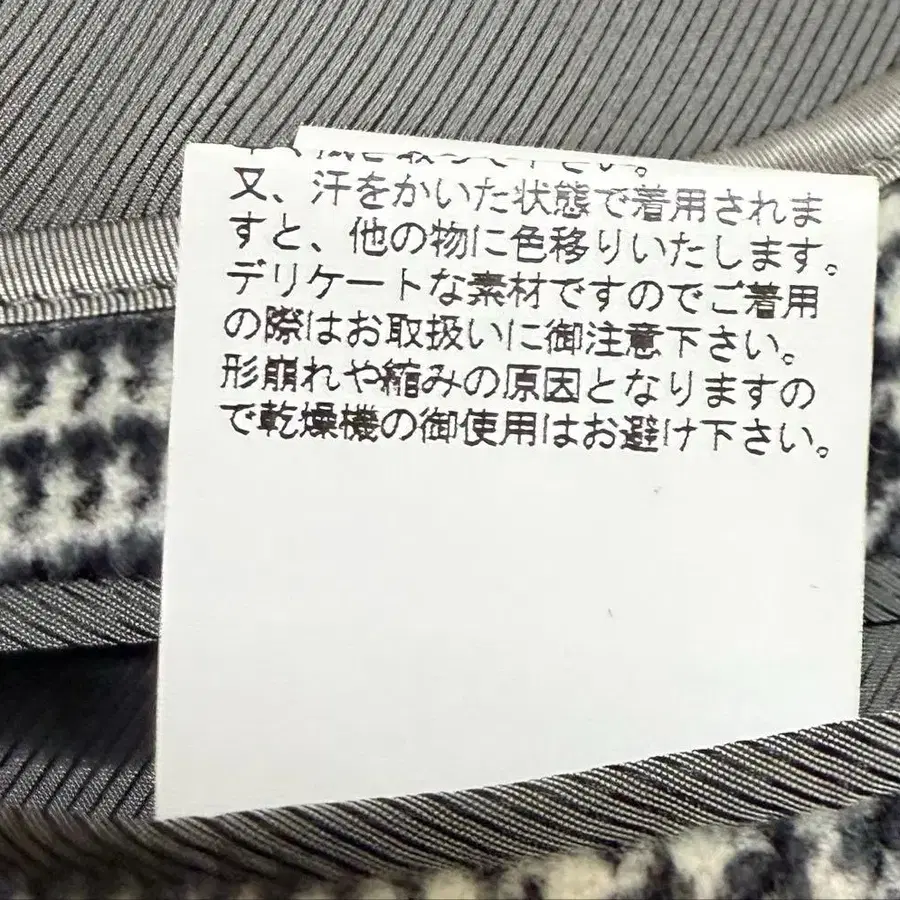 下さい。
又、汗をかいた状態で着用されま
すと、他の物に色移りいたします。
デリケートな素材ですのでご着用
の際はお取扱いに御注意下さい。
形崩れや縮みの原因となりますの
で乾燥機の御使用はお避け下さい。